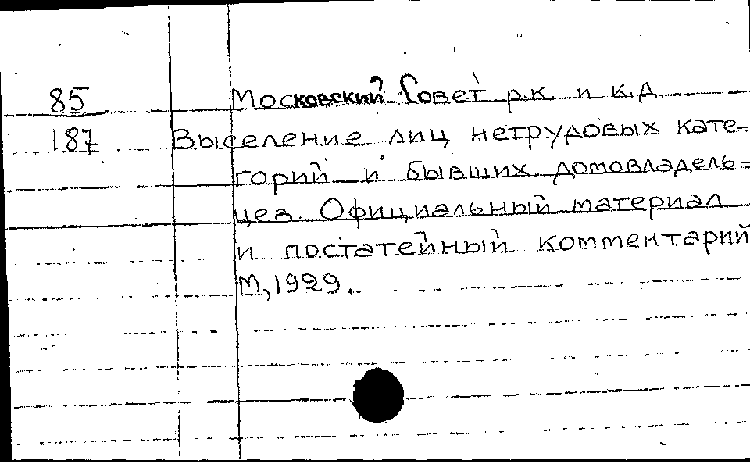 85 Московский Совет р.к. и к.д
187 Выселение лиц нетрудовых кате-
горий и бывших домовладель-
цев. Официальный материал
и постатейный комментарий
М, 1929.